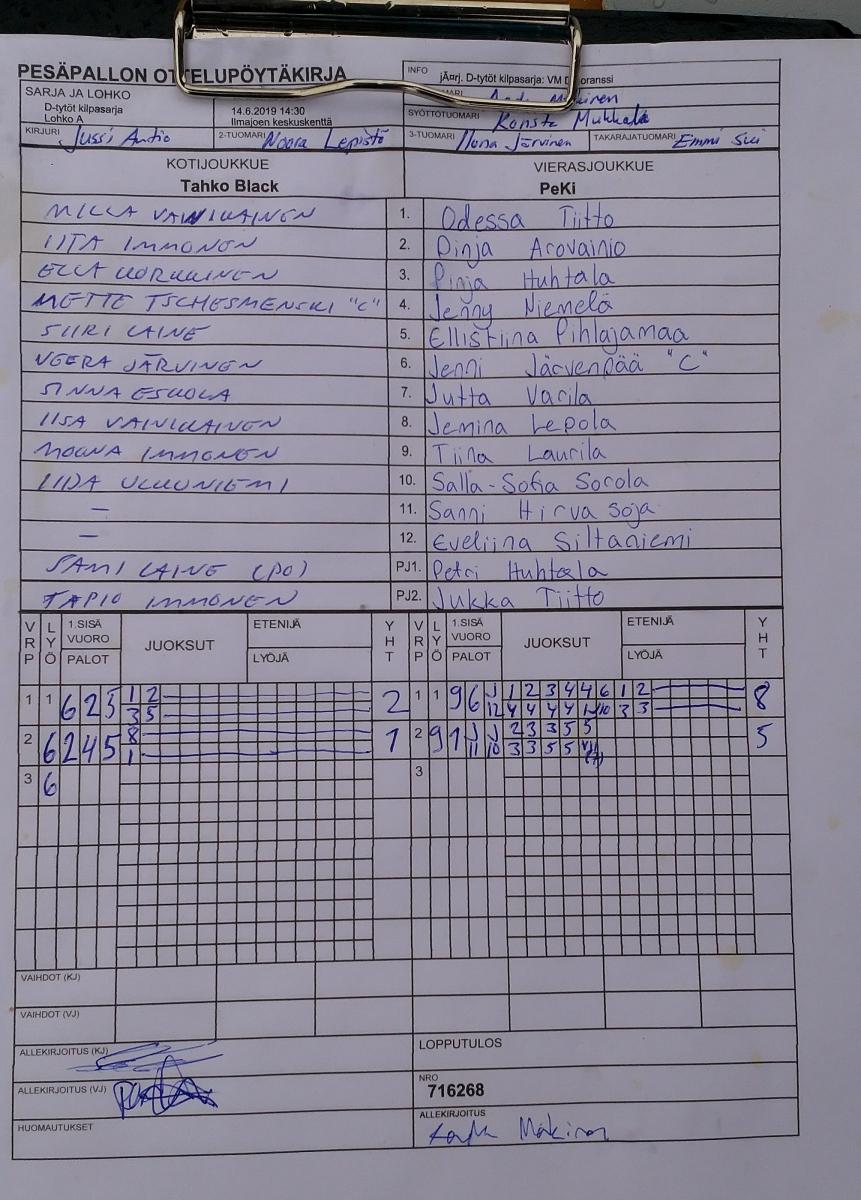 PESÄPALLON OTTELUPÖYTÄKIRJA
INFO jÃ¤rj. D-tytöt kilpasarja: VM oranssi
SARJA JA LOHKO
D-tytöt kilpasarja
Lohko A
14.6.2019 14:30
Ilmajoen keskuskenttä
SYÖTTÖTUOMARI Konsta Mukkala
KIRJURI Jussi Autio 2-TUOMARI Noora Lepistö 3-TUOMARI Ilona Järvinen TAKARAJATUOMARI Emmi
KOTIJOUKKUE VIERASJOUKKUE
Tahko Black PeKi
MILLA VAINIKAINEN 1. Odessa Tiitto
IITA IMMONEN 2. Dinja Arovainio
ELLA KORKKINEN 3. Pinja Huhtala
METTE TSCHESMENSKI "C" 4. Jenny Niemelä
SIIRI LAINE 5. Ellistiina Pihlajamaa
VEERA JÄRVINEN 6. Jenni Järvenpää "C"
SINNA ESKOLA 7. Jutta Varila
IISA VAINIKAINEN 8. Jemina Lepola
MOONA IMMONEN 9. Tiina Laurila
IIDA ULKUNIEMI 10. Salla-Sofia Sorola
– 11. Sanni Hirvasoja
– 12. Eveliina Siltaniemi
SAMI LAINE (PO) PJ1. Petri Huhtala
TAPIO IMMONEN PJ2. Jukka Tiitto
VRP LYÖ 1.SISÄ VUORO PALOT JUOKSUT ETENIJÄ LYÖJÄ YHT VRP LYÖ 1.SISÄ VUORO PALOT JUOKSUT ETENIJÄ LYÖJÄ YHT
1 1 6 2 5 1 2 2 1 1 9 6 J 1 2 3 4 4 6 1 2 8
3 5 12 4 4 4 4 10 3 3
2 6 2 4 5 8 1 2 9 1 J J 2 3 3 5 5 5
1 11 10 3 3 5 5
3 6 3
VAIHDOT (KJ)
VAIHDOT (VJ)
ALLEKIRJOITUS (KJ) LOPPUTULOS
ALLEKIRJOITUS (VJ) NRO
716268
HUOMAUTUKSET ALLEKIRJOITUS
Mäkinen